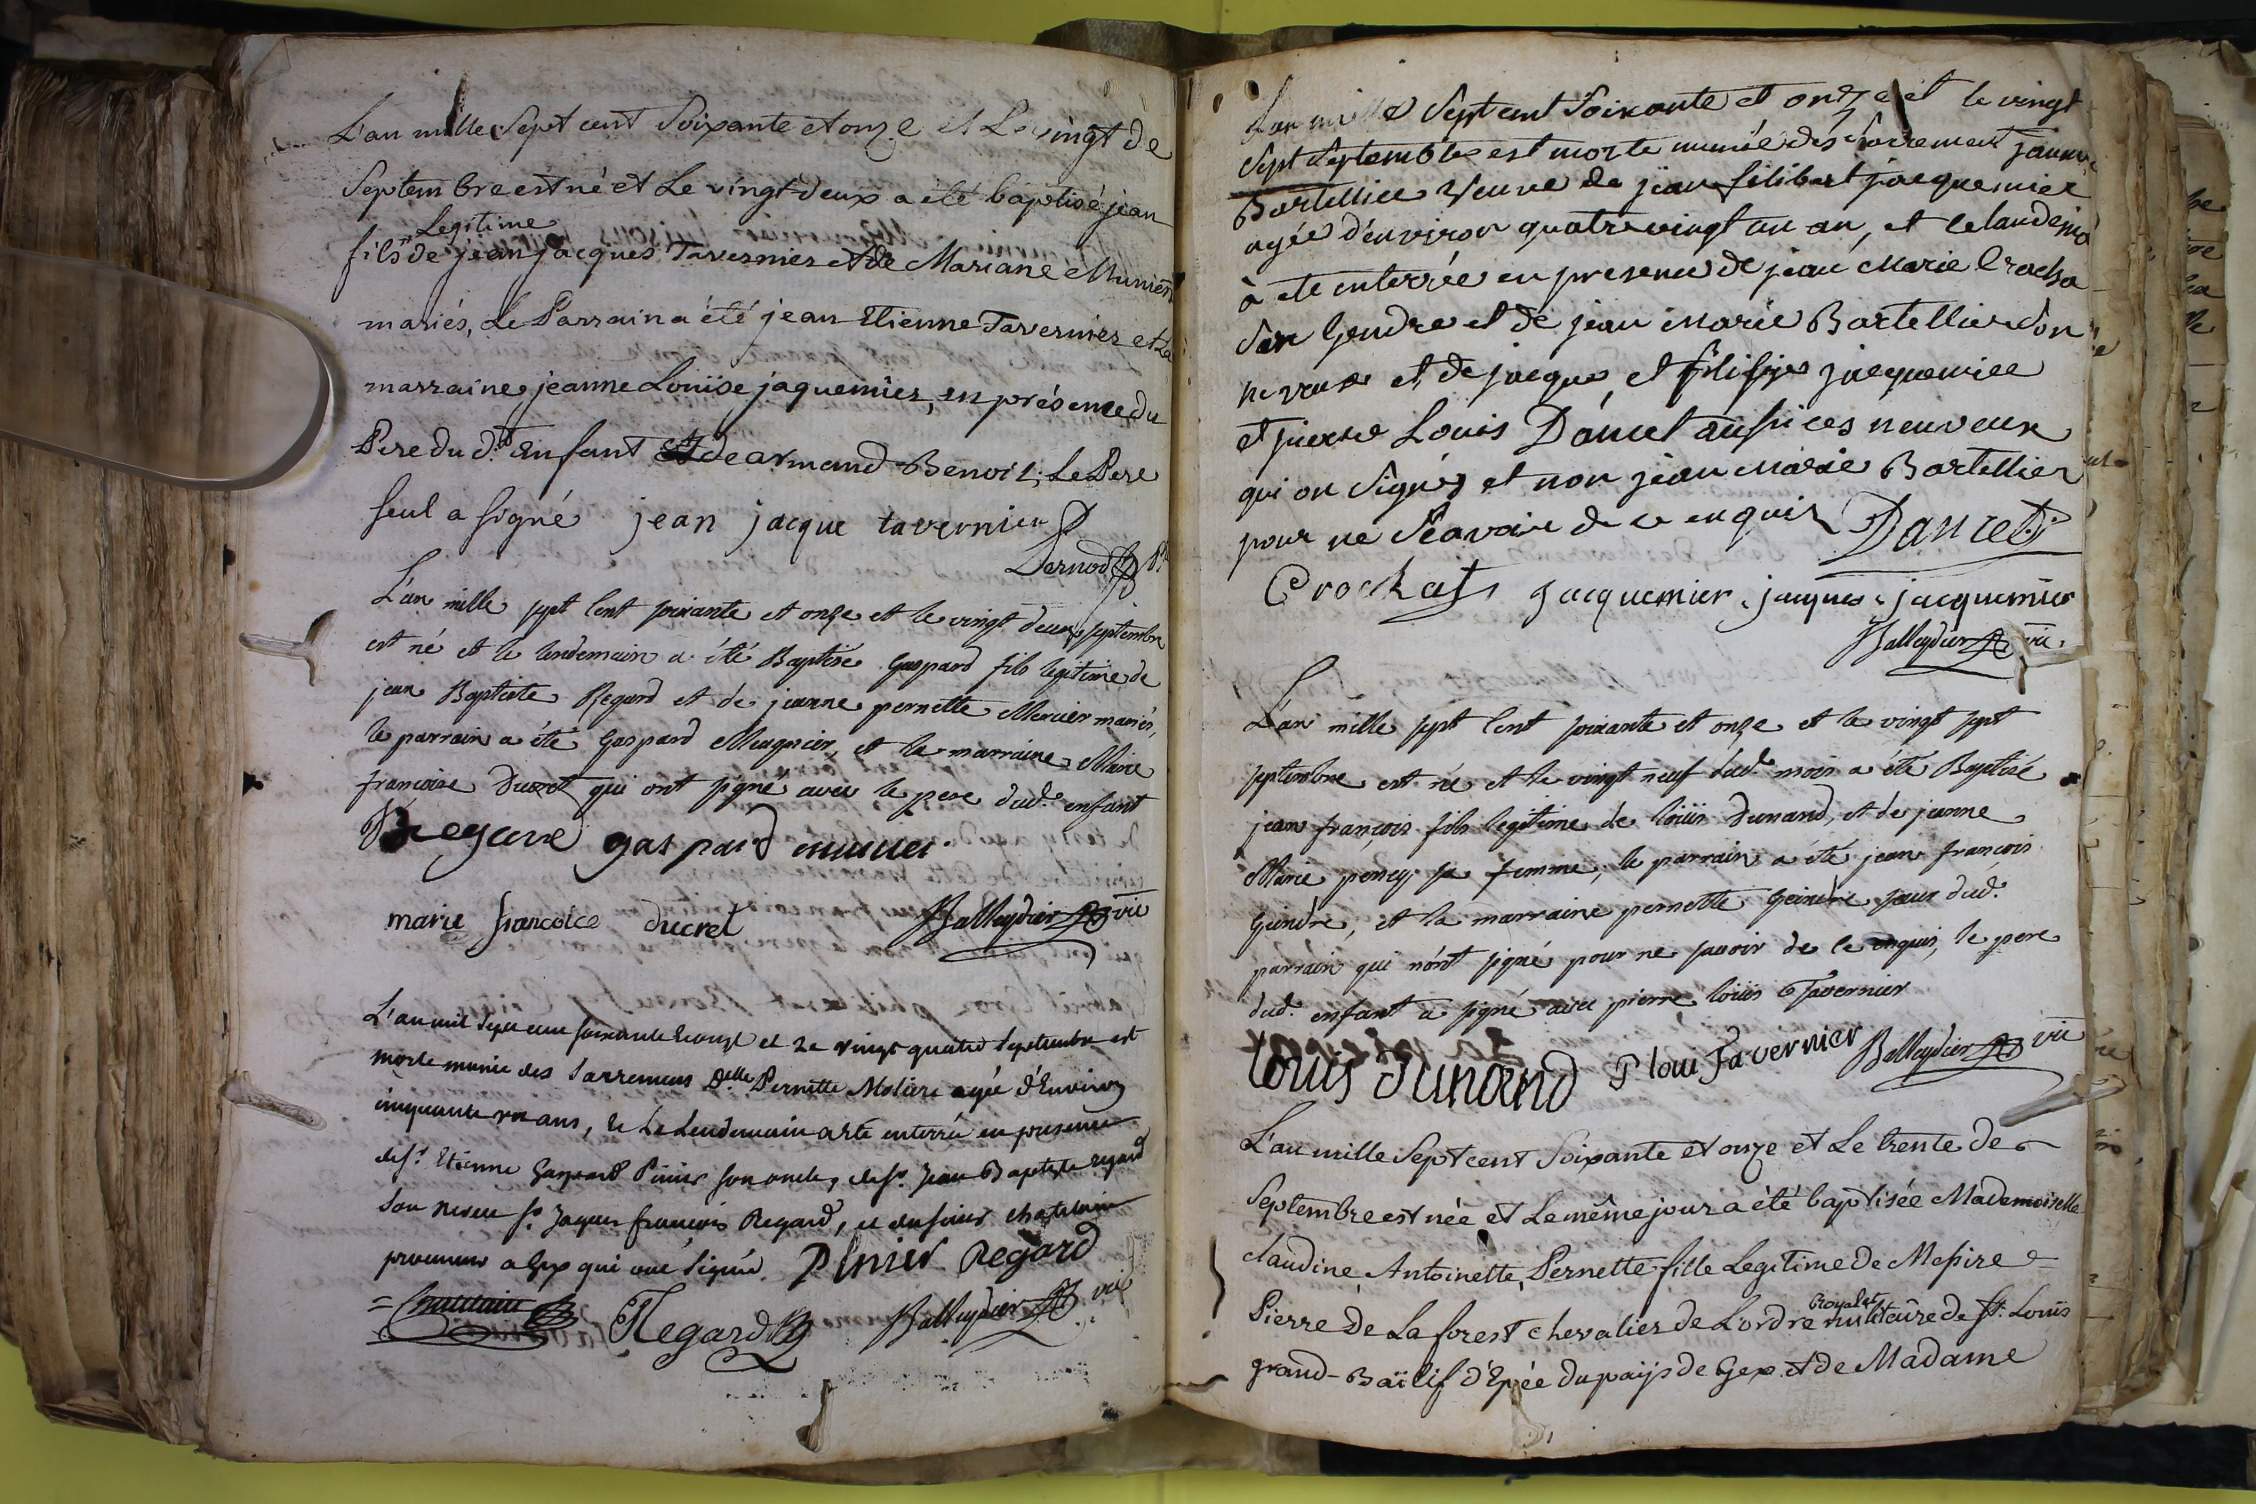 L'an mille Sept cent Soixante et onze et Le vingt de
Septembre est né et Le vingt deux a été baptisé jean
Legitime
fils de jean jacques Tavernier et de Mariane Munier
mariés, Le Parrain a été jean Etienne Tavernier et La
marraine jeanne Louïse jaquemier, en présence du
Pere du d.t Enfant et de armand Benoit; Le Pere
seul a signé jean jacque tavernier
Dernod
L'an mille sept cent soixante et onze et le vingt deux septembre
est né et le lendemain a été Baptisé Gaspard fils legitime de
jean Baptiste Regard et de jeanne pernette Mercier mariés,
le parrain a été Gaspard Meugnier, et la marraine Marie
francoise Ducret qui ont signé avec le pere dud. enfant
Regard gaspard
marie francoice ducret Balleydier vic
L'an mil sept cent soixante et onze et Le vingt quatre septembre est
morte munie des Sacremens D.elle Pernette Molare agée d'Environ
cinquante ans, et Le Lendemain a été enterrée en presence
de s.r Etienne Gaspard Pinier son oncle, de s.r Jean Baptiste regard
son neveu s.r Jaques françois Regard, et du sieur chatelain
procureur a Gex qui ont signé. Pinier Regard
Regard Balleydier vic
L'an mille Sept cent Soixante et onze et le vingt
Sept Septembre est morte munié des Sacrement jeanne
Bartellier Veuve de jean filibert jacquemier
agée d'environ quatre vingt un an, et le landemain
à ete enterrée en presence de jean Marie Crochat
Son Gendre et de jean Marie Bartellier Son
neveux et de jacque et filipe jacquemier
et pierre Louis Dancet aussi ces neuveux
qui on Signés et non jean Marie Bartellier
pour ne Scavoir de ce enquis Dancet
Crochat jacquemier jaques jacquemier
Balleydier vic.
L'an mille sept cent soixante et onze et le vingt sept
septembre est né et le vingt neuf dud. mois a été Baptisé
jean françois fils legitime de loüis Dunand, et de jeanne
Marie perrey sa femme, le parrain a été jean françois
Geindre, et la marraine pernette Geindre sœur dud.
parrain qui n'ont signé pour ne savoir de ce enquis, le pere
dud. enfant a signé avec pierre loüis Tavernier
louis dunand P loui Tavernier Balleydier vic
L'an mille Sept cent Soixante et onze et Le trente de
Septembre est née et Le même jour a été baptisée Mademoiselle
claudine Antoinette Pernette fille Legitime de Messire
Royal et
Pierre De La forest chevalier de L'ordre militaire de S.t Louis
grand-Baïlif d'Epée du païs de Gex et de Madame